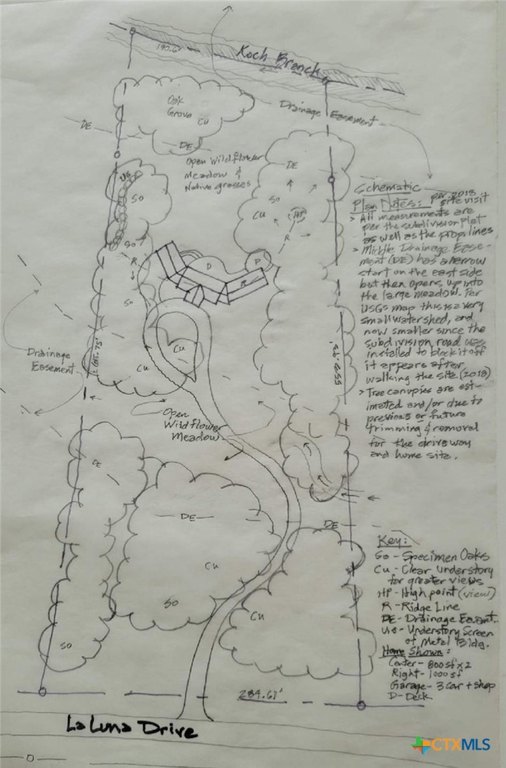 Koch Branch
190.67'
Drainage Easement
Oak
Grove
CU
DE
DE
DE
Open Wildflower
Meadow &
Native grasses
US
SO
SO
SO
R
CU
HP
R
D
D
CU
CU
CU
Drainage
Easement
Open
Wildflower
Meadow
DE
DE
DE
CU
SO
SO
CU
284.67'
La Luna Drive
Schematic
Plan Notes: per 2018
site visit
> All measurements are
per the subdivision plat
as well as the prop lines
> Middle Drainage Ease-
ment (DE) has a narrow
start on the east side
but then opens up into
the large meadow. Per
USGS map this is a very
small watershed, and
now smaller since the
subdivision road was
installed to block it off
it appears after
walking the site (2018)
> Tree canopies are est-
imated and/or due to
previous or future
trimming & removal
for the driveway
and home site.
Key:
SO - Specimen Oaks
CU - Clear Understory
for greater views
HP - High point (view)
R - Ridge Line
DE - Drainage Easmt.
US - Understory Screen
of Metal Bldg.
Home Shown:
Center - 800sf x 2
Right - 1000sf
Garage - 3 car + shop
D - Deck
CTXMLS